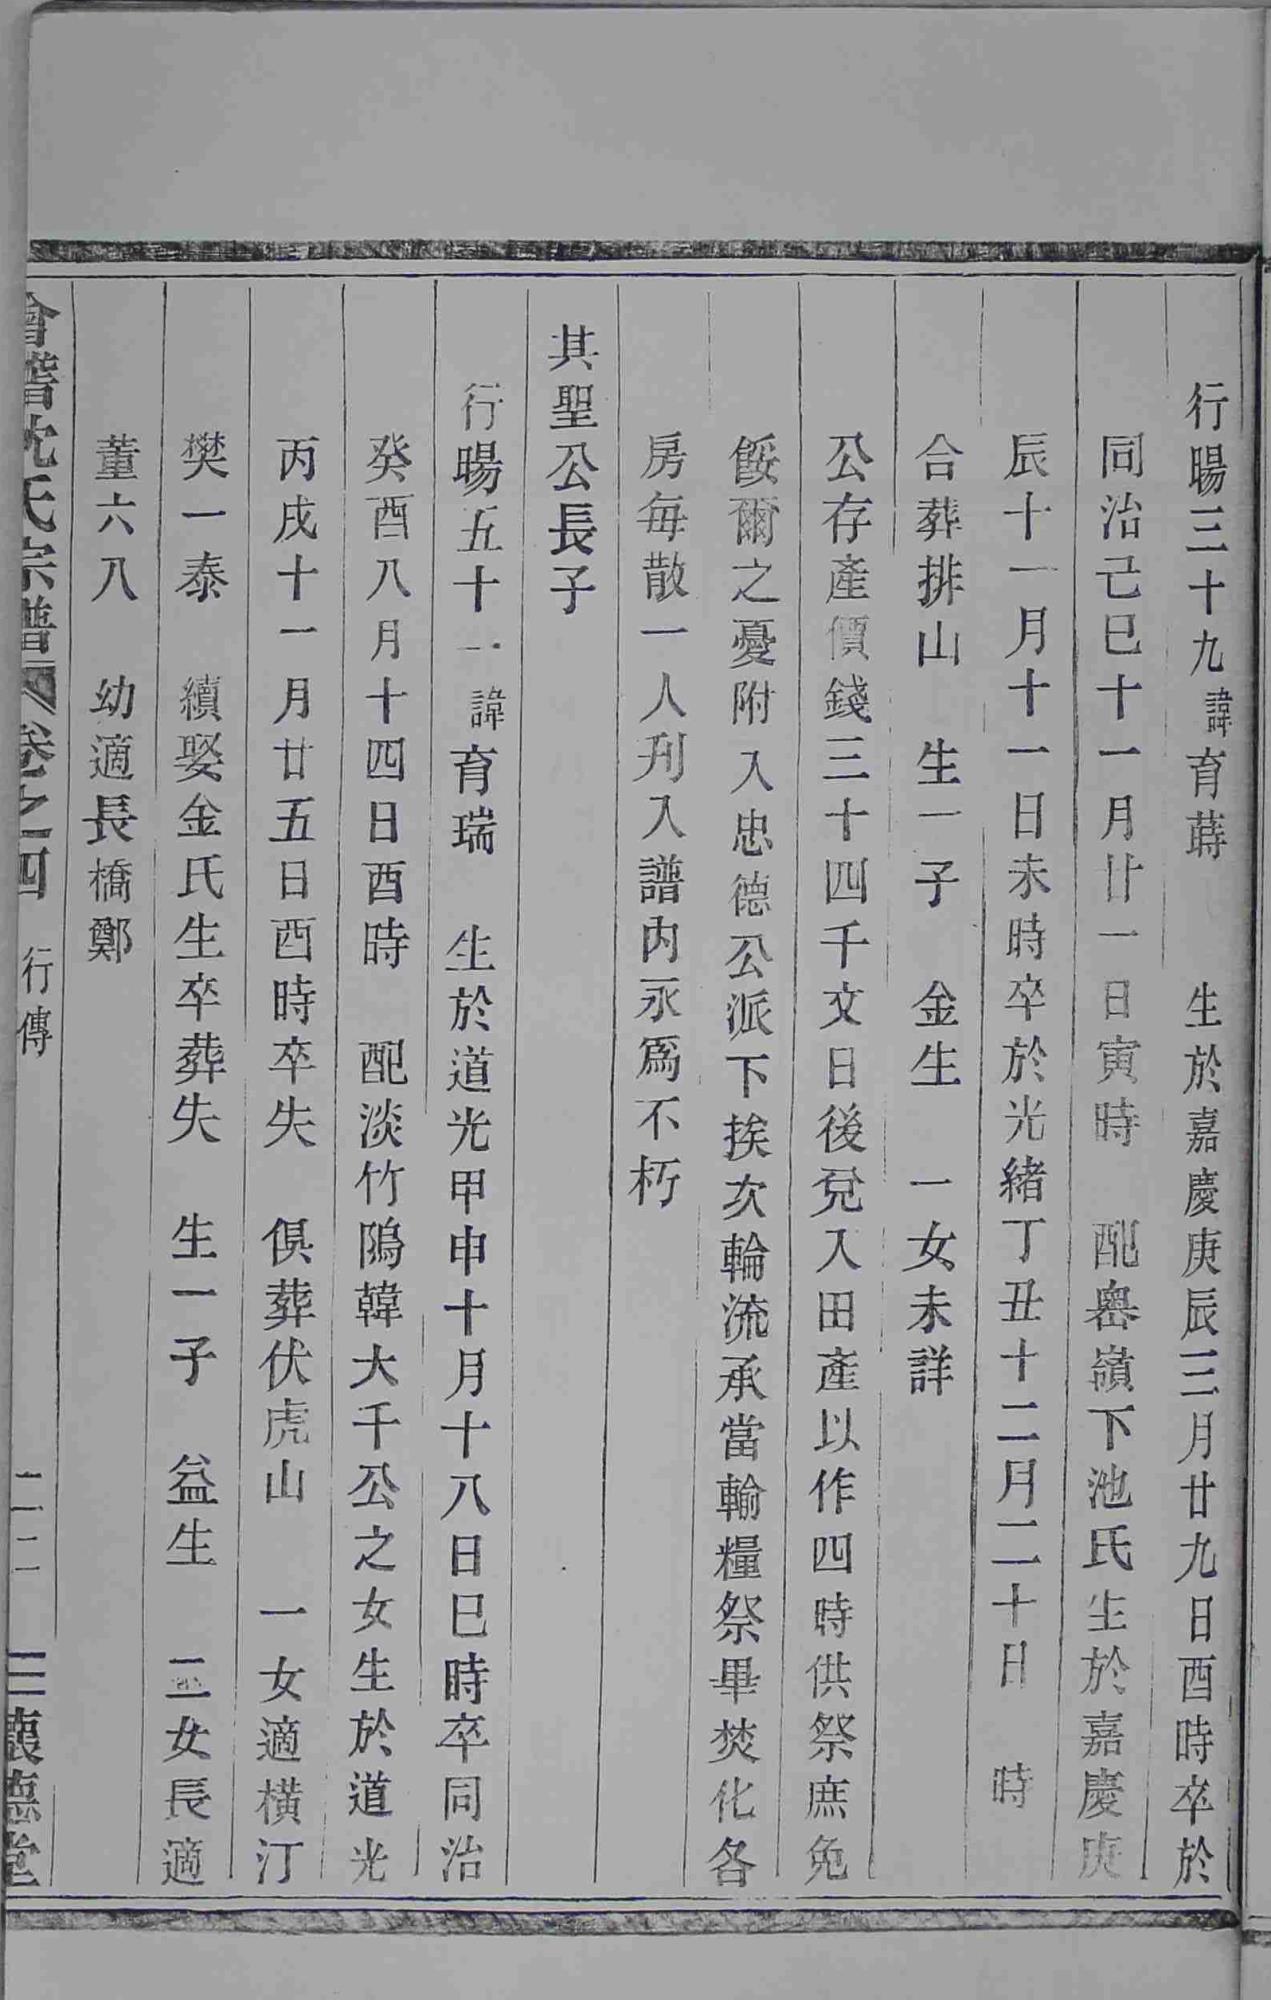 行暘三十九諱育蒔　生於嘉慶庚辰三月廿九日酉時卒於
同治己巳十一月廿一日寅時　配嶴嶺下池氏生於嘉慶庚
辰十一月十一日未時卒於光緒丁丑十二月二十日　時
合葬排山　生一子　金生　一女未詳
公存產價錢三十四千文日後兌入田產以作四時供祭庶免
餒爾之憂附入忠德公派下挨次輪流承當輸糧祭畢焚化各
房每散一人刋入譜內永爲不朽
其聖公長子
行暘五十一諱育瑞　生於道光甲申十月十八日巳時卒同治
癸酉八月十四日酉時　配淡竹隝韓大千公之女生於道光
丙戌十一月廿五日酉時卒失　俱葬伏虎山　一女適橫汀
樊一泰　續娶金氏生卒葬失　生一子　益生　二女長適
董六八　幼適長橋鄭
會稽沈氏宗譜　卷之四　行傳　二二　懷德堂